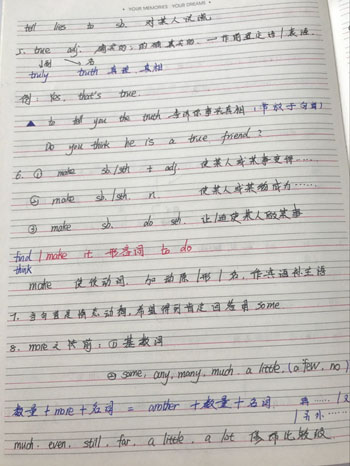 YOUR MEMORIES · YOUR DREAMS
tell lies to sb. 对某人说谎
5. true adj. 真实的; 的确真实的. 一作用连定语/表语.
↓副 ↘名
truly truth 真理 真相
例: Yes, that's true.
▲ to tell you the truth 告诉你事实真相 (常放于句首)
Do you think he is a true friend?
6. ① make sb./sth + adj. 使某人或某事变得……
② make sb./sth. n. 使某人或某物成为……
③ make sb. do sth. 让/迫使某人做某事
find / make it 形容词 to do
think
make 使役动词. 加动原/形/名, 作宾语补主语
7. 当句且是情态动词, 希望得到肯定回答用 some
8. more 之前: ① 基数词
② some, any, many, much, a little, (a few, no)
数量 + more + 名词 = another + 数量 + 名词 再……/又
/另外……
much, even, still, far, a little, a lot 修饰比较级